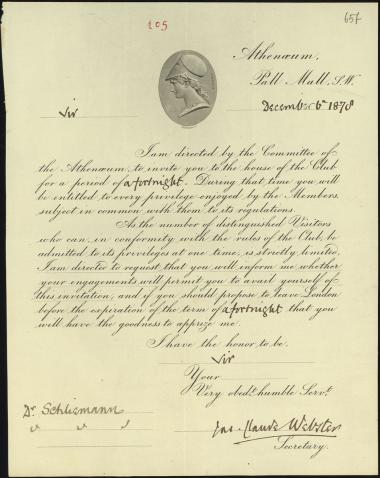 105
657
Athenæum,
Pall Mall, S.W.
December 6th 1878
Sir
I am directed by the Committee of
the Athenæum, to invite you to the house of the Club
for a period of a fortnight. During that time you will
be entitled to every privilege enjoyed by the Members,
subject in common with them to its regulations.
As the number of distinguished Visitors
who can, in conformity with the rules of the Club, be
admitted to its privileges at one time, is strictly limited,
I am directed to request that you will inform me whether
your engagements will permit you to avail yourself of
this invitation, and if you should propose to leave London
before the expiration of the term of a fortnight that you
will have the goodness to apprize me.
I have the honor to be,
Sir
Your
Very obedt. humble Servt.
Dr Schliemann
Jno. Claude Webster
Secretary.